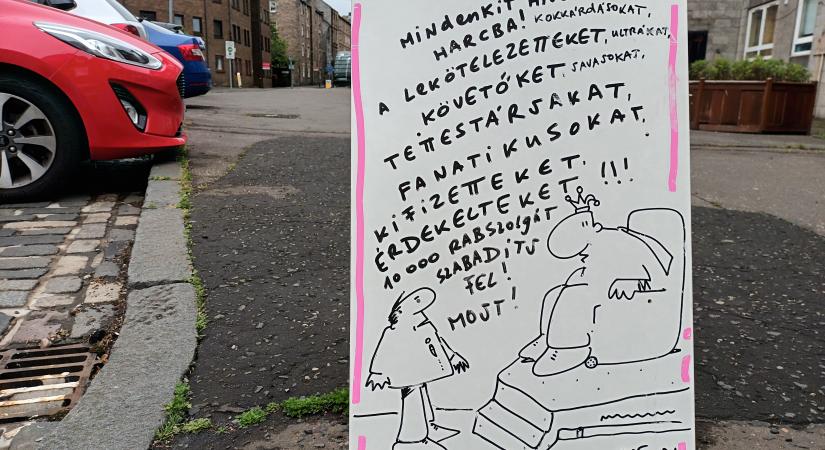 MINDENKIT
HARCBA! KOKKÁRDÁSOKAT,
A LEKÖTELEZETTEKET, ULTRÁKAT,
KÖVETŐKET, SAVASOKAT,
TETTESTÁRSAKAT,
FANATIKUSOKAT,
KIFIZETTEKET,
ÉRDEKELTEKET !!!
10 000 RABSZOLGÁT
SZABADÍTS
FEL!
MOJT!